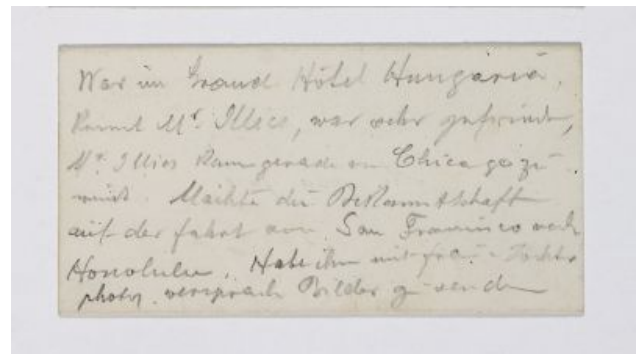 War im Grand Hôtel Hungaria,
Kennt Mr. Illies, war sehr
Mr. Illies kam gerade von Chicago zu
Machte die Bekanntschaft
auf der fahrt von San Francisco nach
Honolulu. Habe ihn mit Frau Tochter
photogr. versprach Bilder z. senden